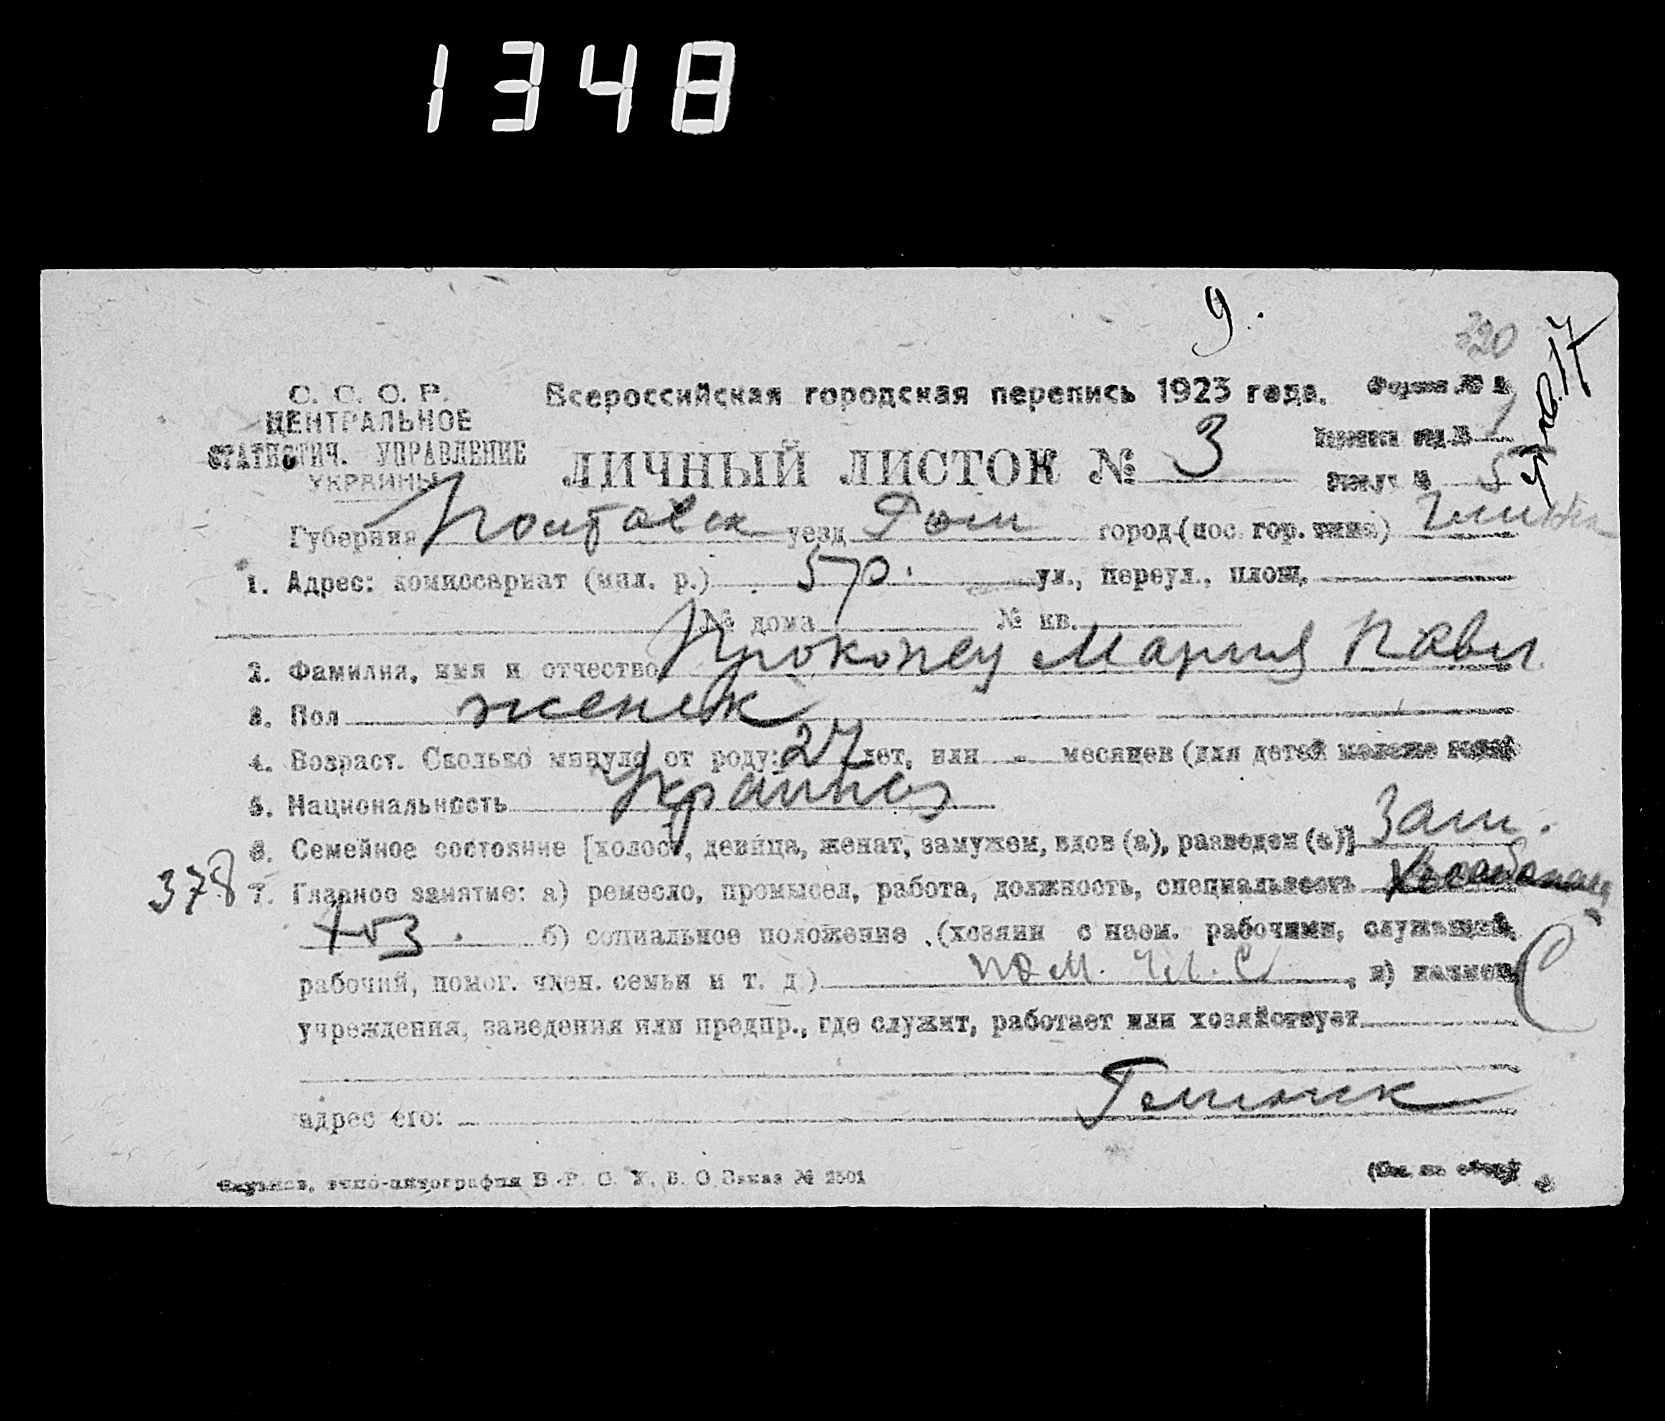 1348
9.
320
С. С. С. Р.
ЦЕНТРАЛЬНОЕ
СТАТИСТИЧ. УПРАВЛЕНИЕ
УКРАИНЫ
Всероссийская городская перепись 1923 года. Форма № 1
ЛИЧНЫЙ ЛИСТОК № 3
Губерния Полтавск уезд Ром город (пос. гор. типа)
1. Адрес: комиссариат (мил. р.) 5 р. ул., переул., площ.
№ дома № кв.
2. Фамилия, имя и отчество Прокопец Мария Павл
3. Пол женск
4. Возраст. Сколько минуло от роду: 27 лет, или - месяцев (для детей моложе года)
5. Национальность Украинка
6. Семейное состояние [холост, девица, женат, замужем, вдов (а), разведен (а)] Зам.
378 7. Главное занятие: а) ремесло, промысел, работа, должность, специальность
хоз. б) социальное положение (хозяин с наем. рабочими, служащий,
рабочий, помог. член. семьи и т. д.) пом. чл. с , в) наимен.
учреждения, заведения или предпр., где служит, работает или хозяйствует
адрес его:
типо-литография В. Р. С. Х. В. О. Заказ № 2501
(См. на обор.)